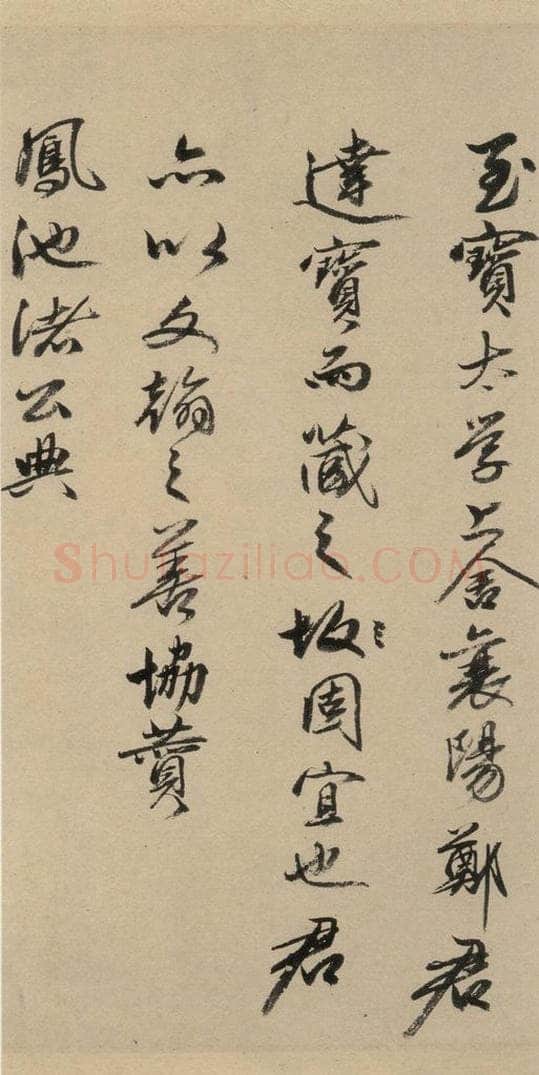 至寶太学上舍襄陽鄭君
達寶而藏之故固宜也君
亦以文翰之善協贊
鳳池諸公典
Shufaziliao.COM